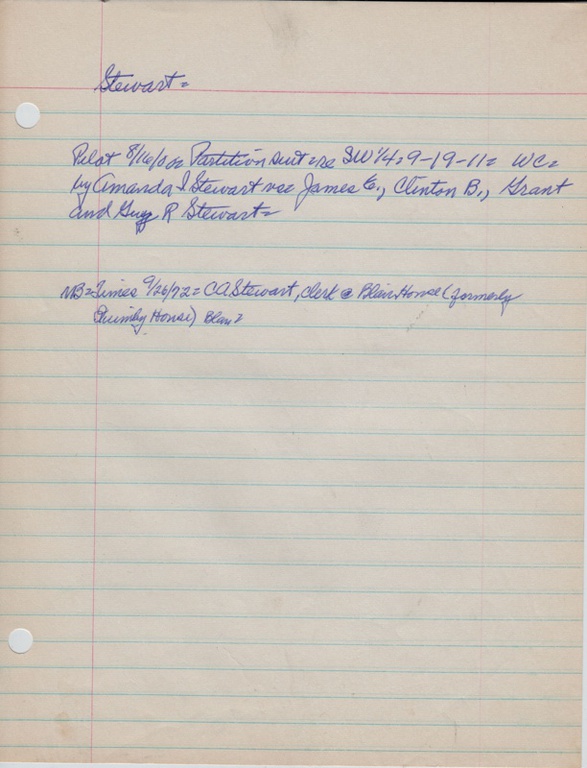 Stewart =
Pilot 8/16/00 = Partition suit = re SW 1/4 = 9-19-11 = WC =
by Amanda I. Stewart vs = James E., Clinton B., Grant
and Guy R Stewart =
NB = Times 9/26/72 = CA Stewart, clerk @ Blair House (formerly
Quimby House) Blair =